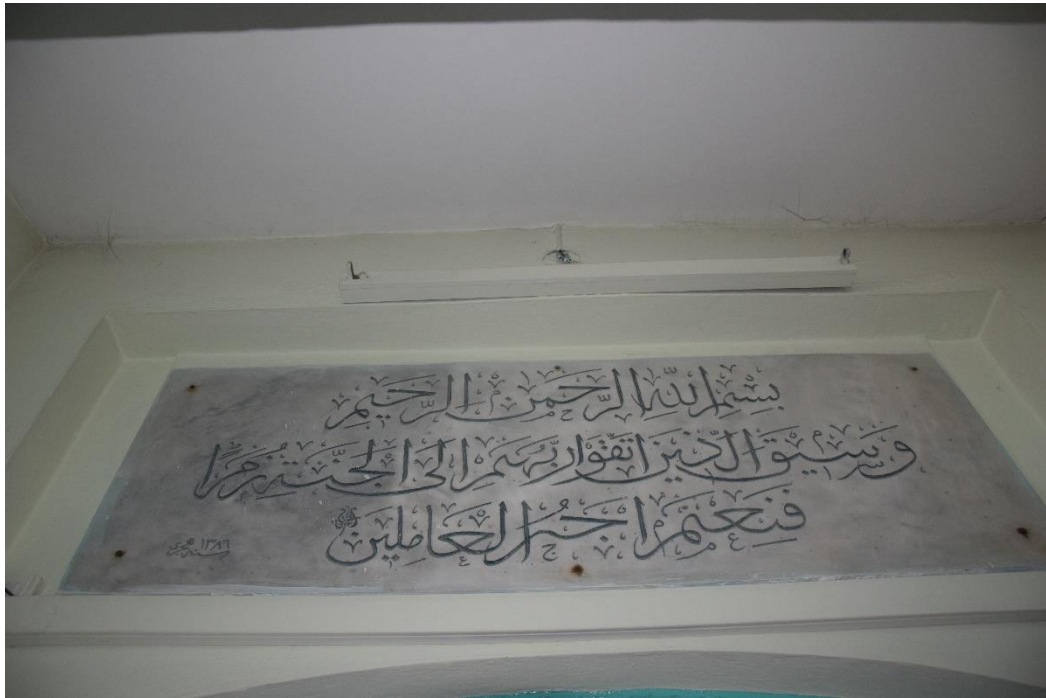 بِسْمِ اللهِ الرَّحْمٰنِ الرَّحِيْمِ
وَسِيْقَ الَّذِيْنَ اتَّقَوْا رَبَّهُمْ اِلَى الْجَنَّةِ زُمَرًا
فَنِعْمَ اَجْرُ الْعَامِلِيْنَ
سنه ١٣٨٦ هجري